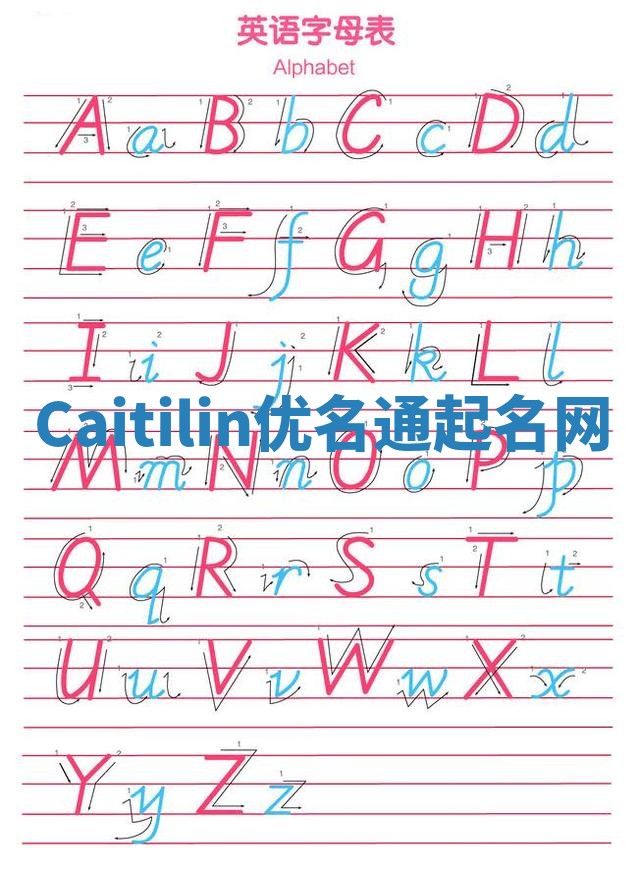 英语字母表
Alphabet
A a B b C c D d
E e F f G g H h
I i J j K k L l
Caitilin优名通起名网
M m N n O o P p
Q q R r S s T t
U u V v W w X x
Y y Z z